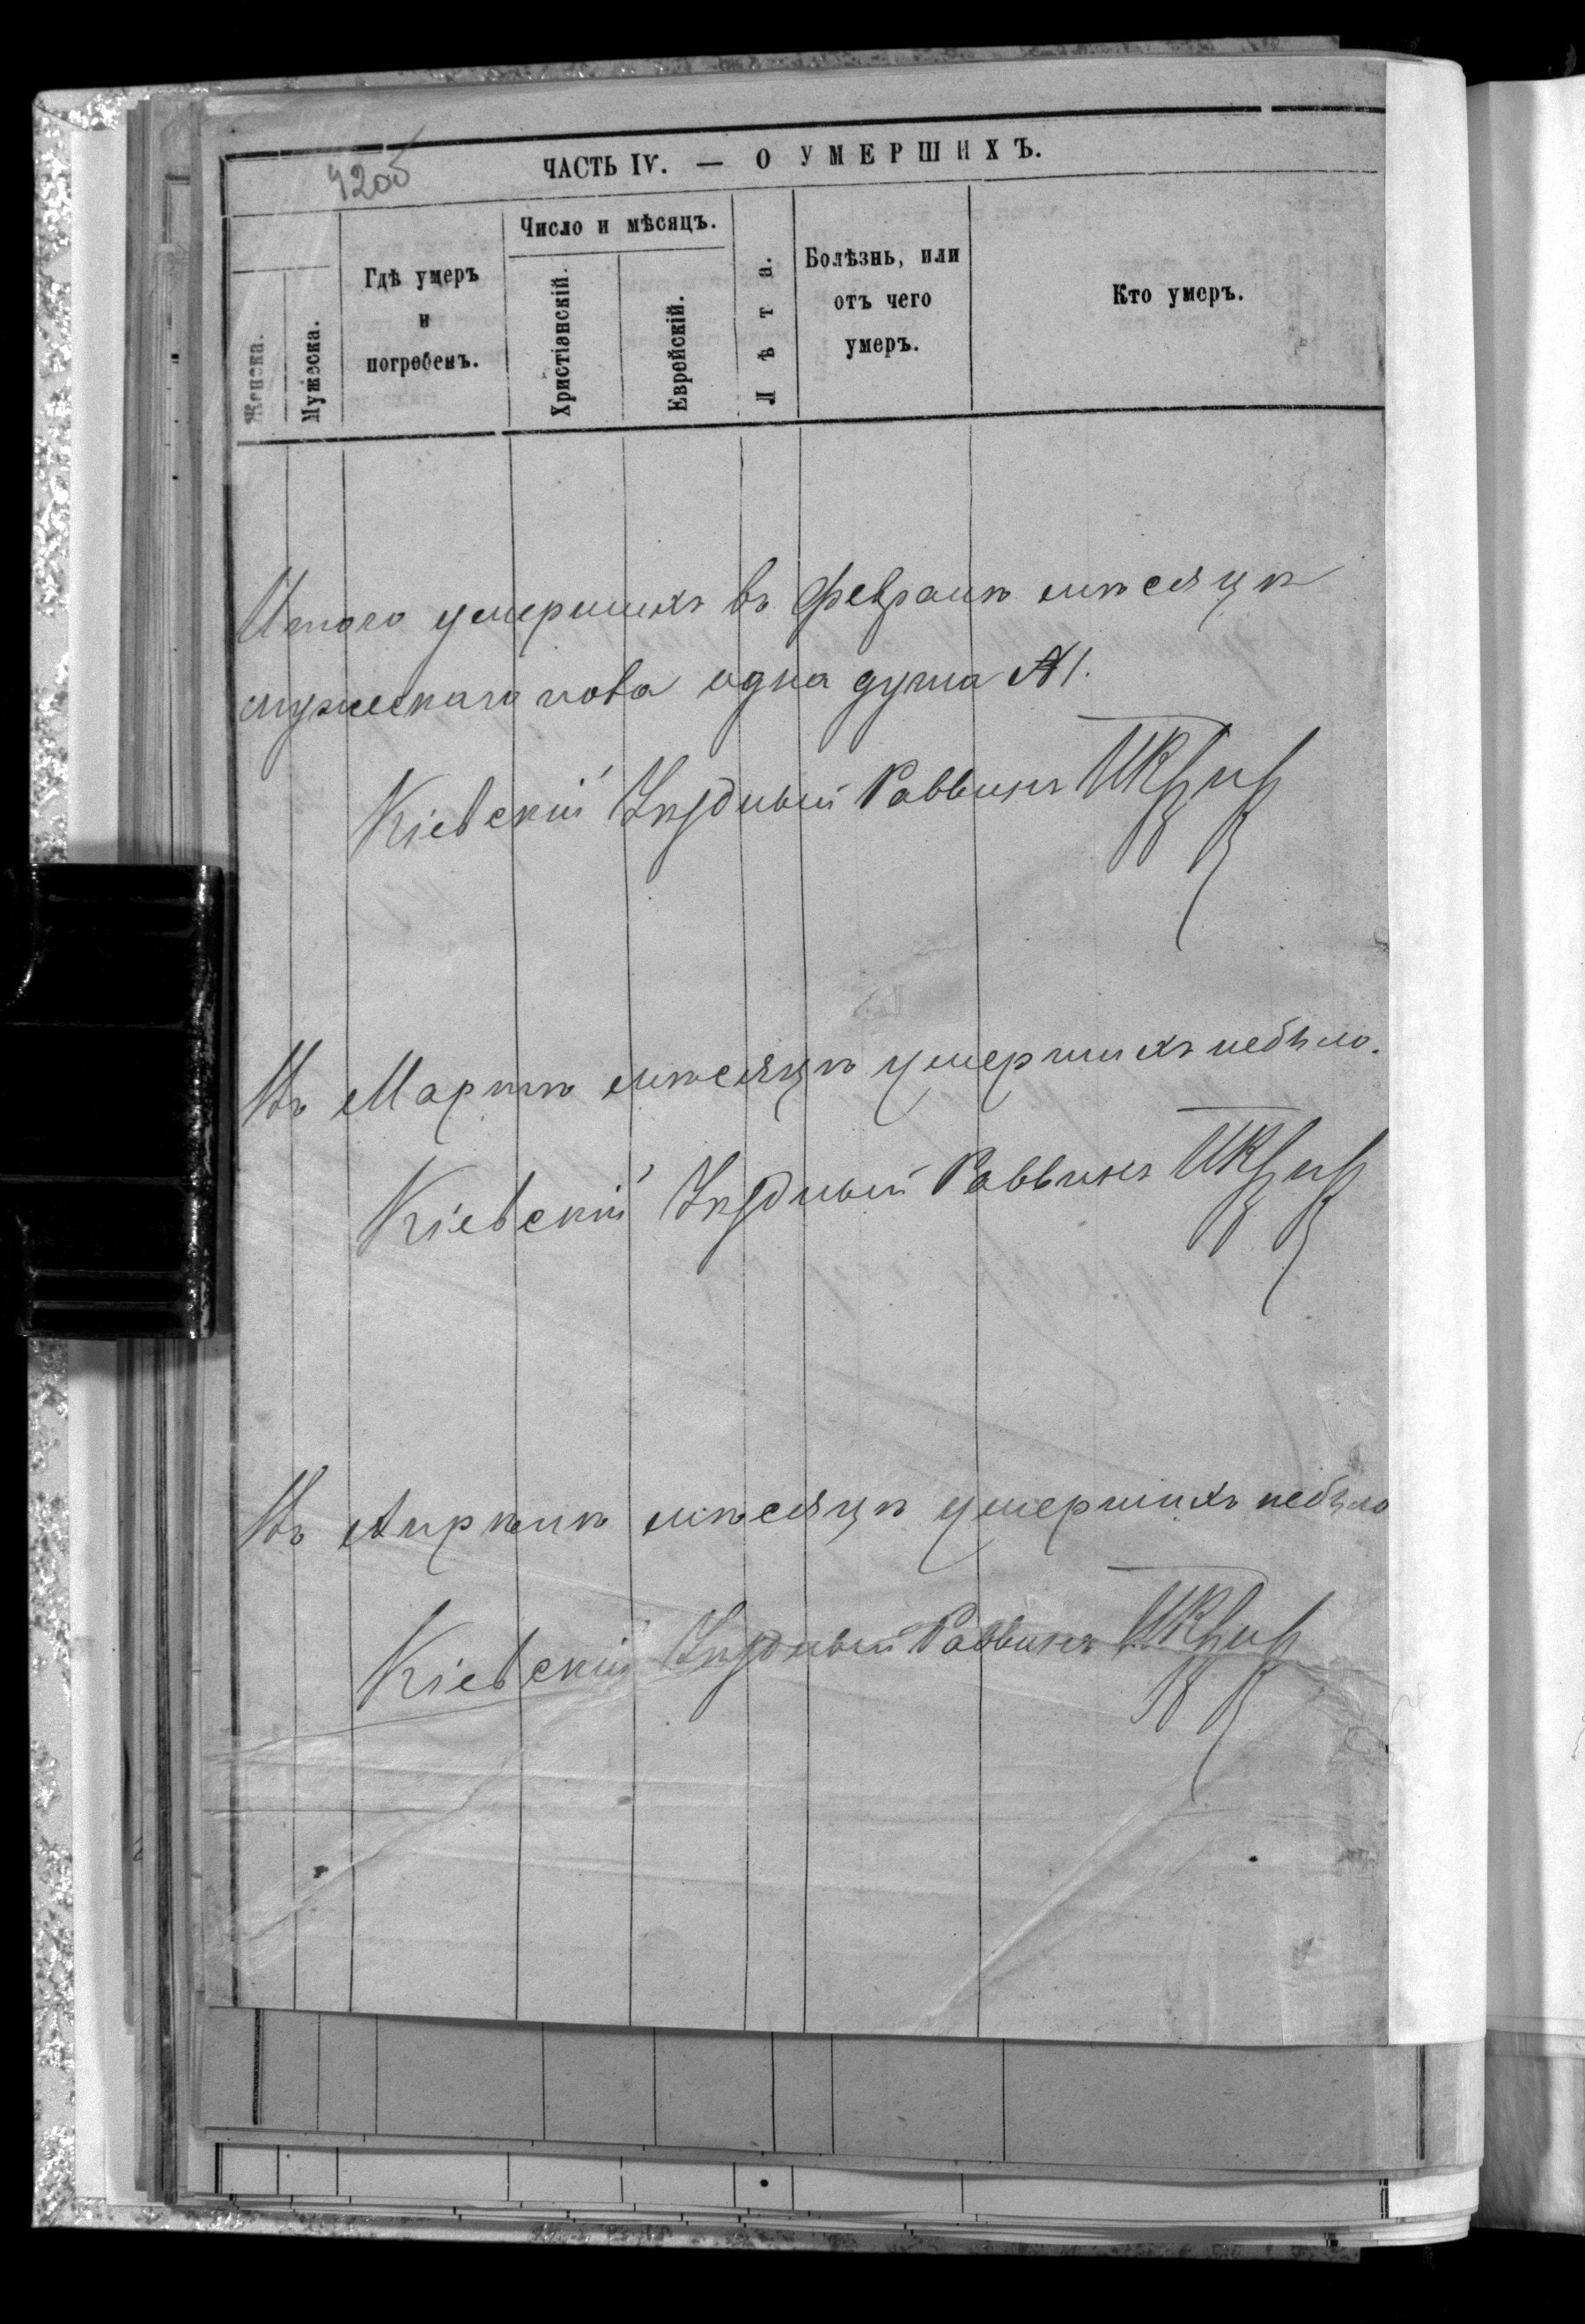 42об
ЧАСТЬ IV. — О УМЕРШИХЪ.
Женска.
Мужеска.
Гдѣ умеръ
и
погребенъ.
Число и мѣсяцъ.
Христіанскій.
Еврейскій.
Лѣта.
Болѣзнь, или
отъ чего
умеръ.
Кто умеръ.
Итого умершихъ въ Февралѣ мѣсяцѣ
мужескаго пола одна душа №1.
Кіевскій Уѣздный Раввинъ
Въ Мартѣ мѣсяцѣ умершихъ небыло.
Кіевскій Уѣздный Раввинъ
Въ Апрѣлѣ мѣсяцѣ умершихъ небыло
Кіевскій Уѣздный Раввинъ